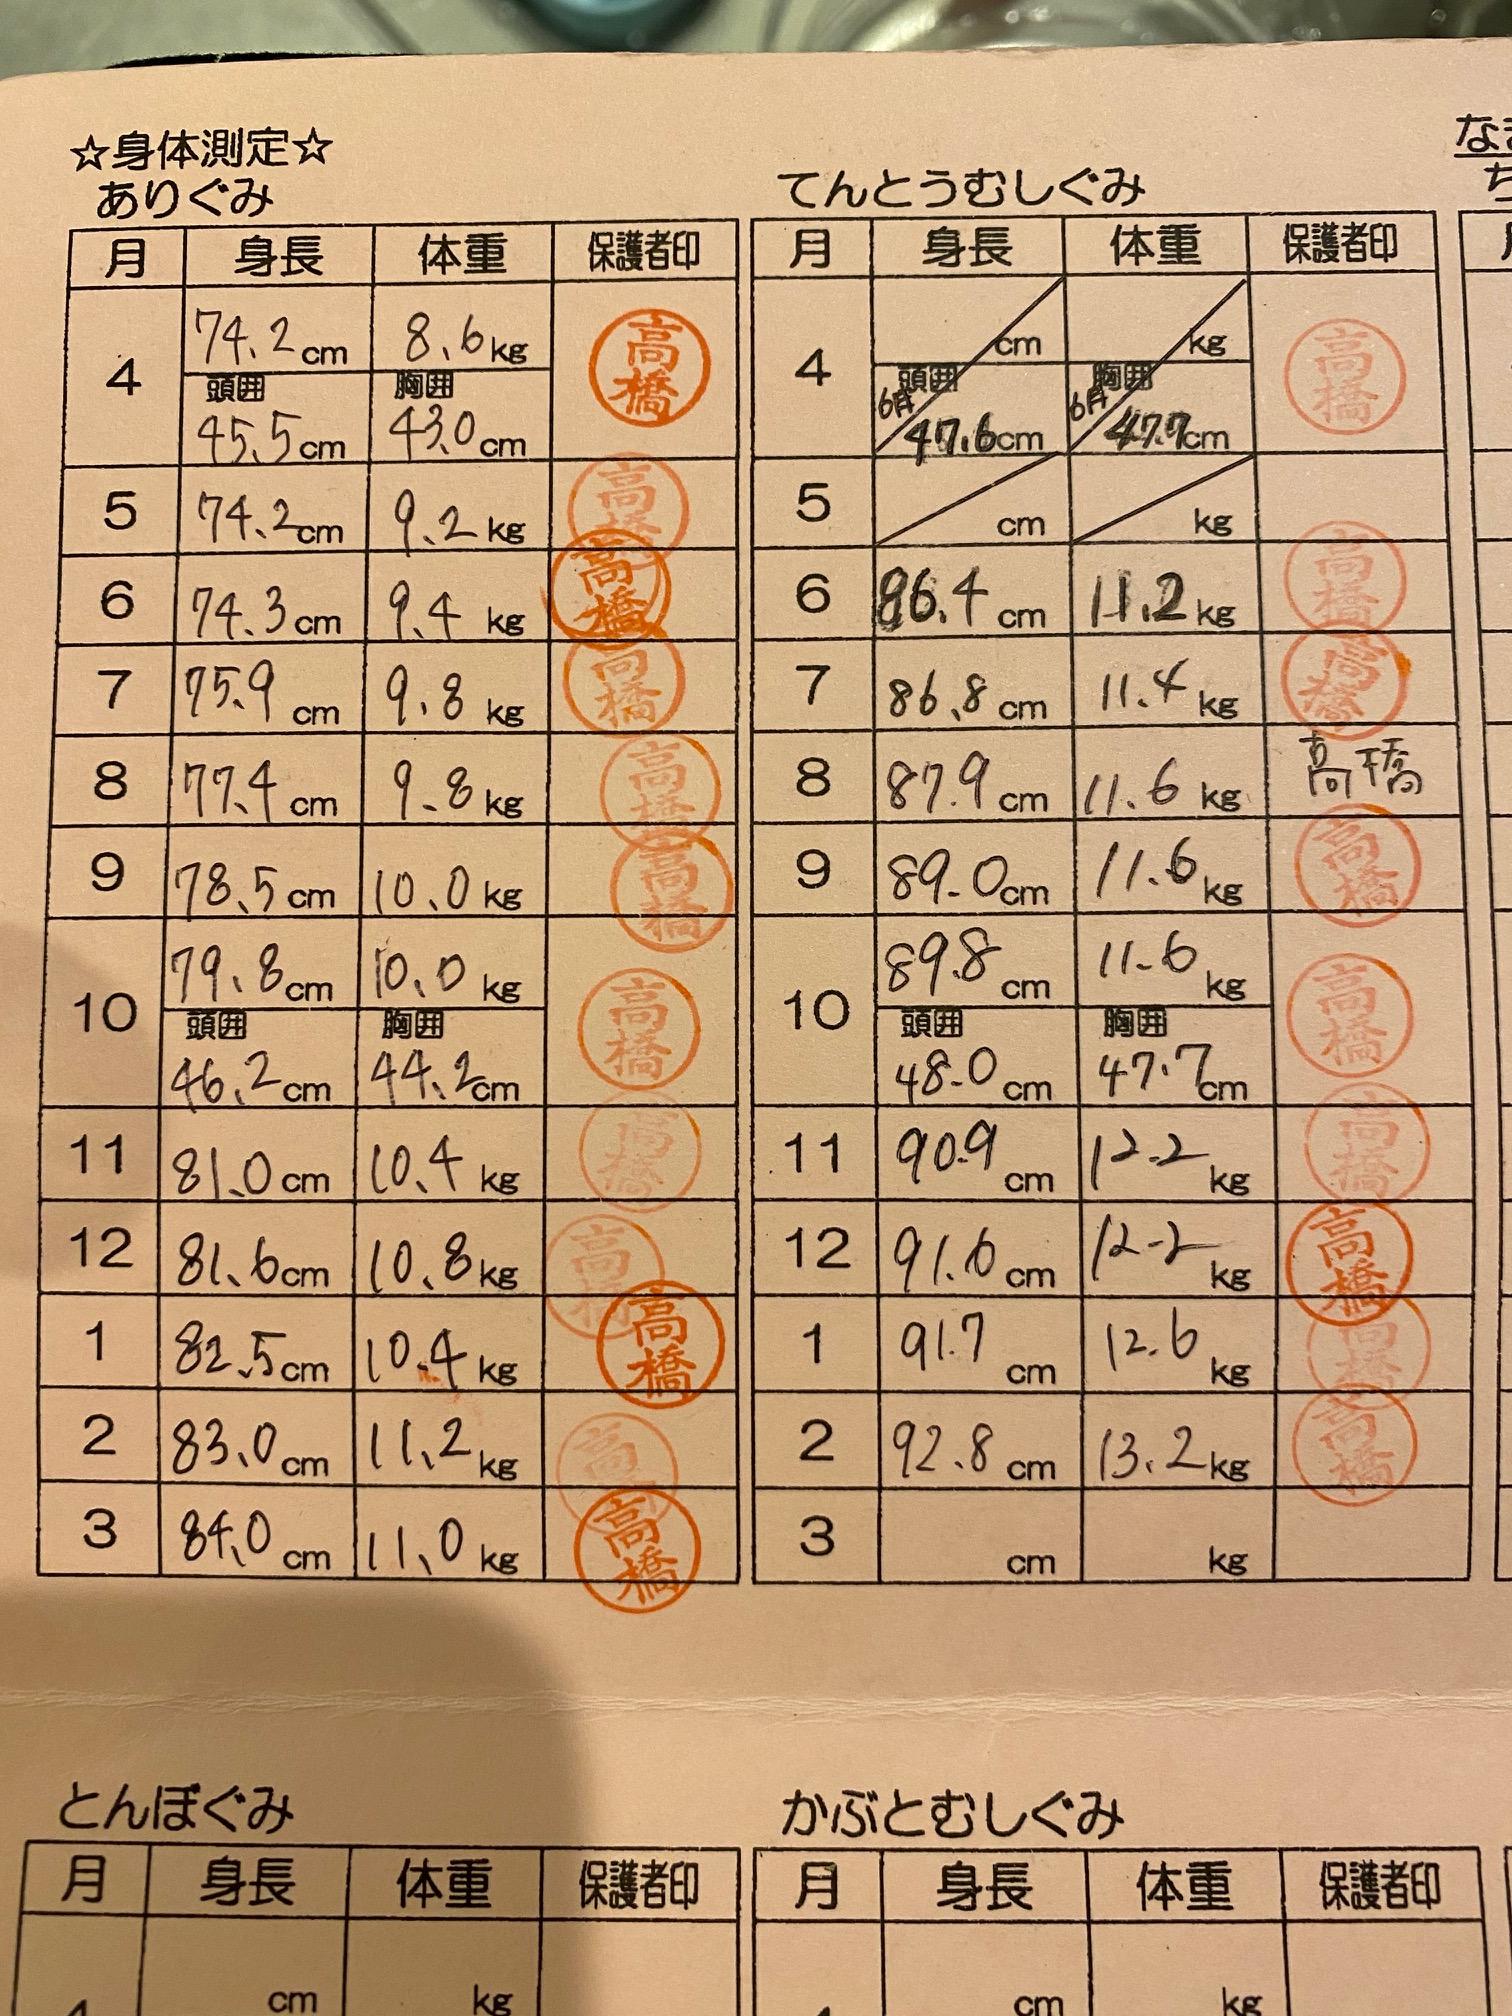 ☆身体測定☆
ありぐみ
月 身長 体重 保護者印
4 74.2cm 8.6kg 高橋
頭囲 胸囲
45.5cm 43.0cm
5 74.2cm 9.2kg 高橋
6 74.3cm 9.4kg 高橋
7 75.9cm 9.8kg 高橋
8 77.4cm 9.8kg 高橋
9 78.5cm 10.0kg 高橋
10 79.8cm 10.0kg 高橋
頭囲 胸囲
46.2cm 44.2cm
11 81.0cm 10.4kg 高橋
12 81.6cm 10.8kg 高橋
1 82.5cm 10.4kg 高橋
2 83.0cm 11.2kg 高橋
3 84.0cm 11.0kg 高橋
てんとうむしぐみ
月 身長 体重 保護者印
4 cm kg 高橋
頭囲 胸囲
6月 47.6cm 6月 47.7cm
5 cm kg
6 86.4cm 11.2kg 高橋
7 86.8cm 11.4kg 高橋
8 87.9cm 11.6kg 高橋
9 89.0cm 11.6kg 高橋
10 89.8cm 11.6kg 高橋
頭囲 胸囲
48.0cm 47.7cm
11 90.9cm 12.2kg 高橋
12 91.6cm 12.2kg 高橋
1 91.7cm 12.6kg 高橋
2 92.8cm 13.2kg 高橋
3 cm kg
な
ち
とんぼぐみ
月 身長 体重 保護者印
cm kg
かぶとむしぐみ
月 身長 体重 保護者印
cm kg